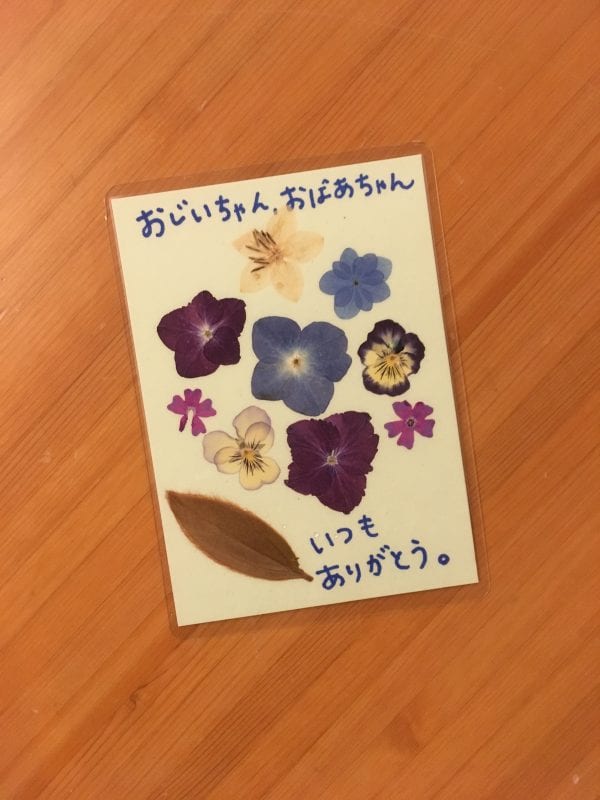 おじいちゃん、おばあちゃん
いつも
ありがとう。